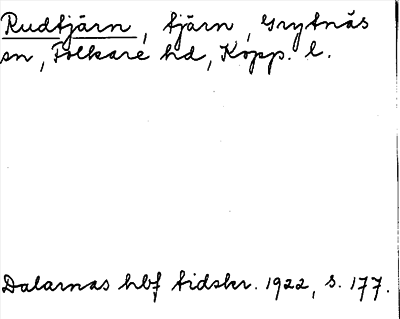 Rudtjärn, tjärn, Grytnäs
sn, Folkare hd, Kopp. l.
Dalarnas hbf tidskr. 1922, s. 177.